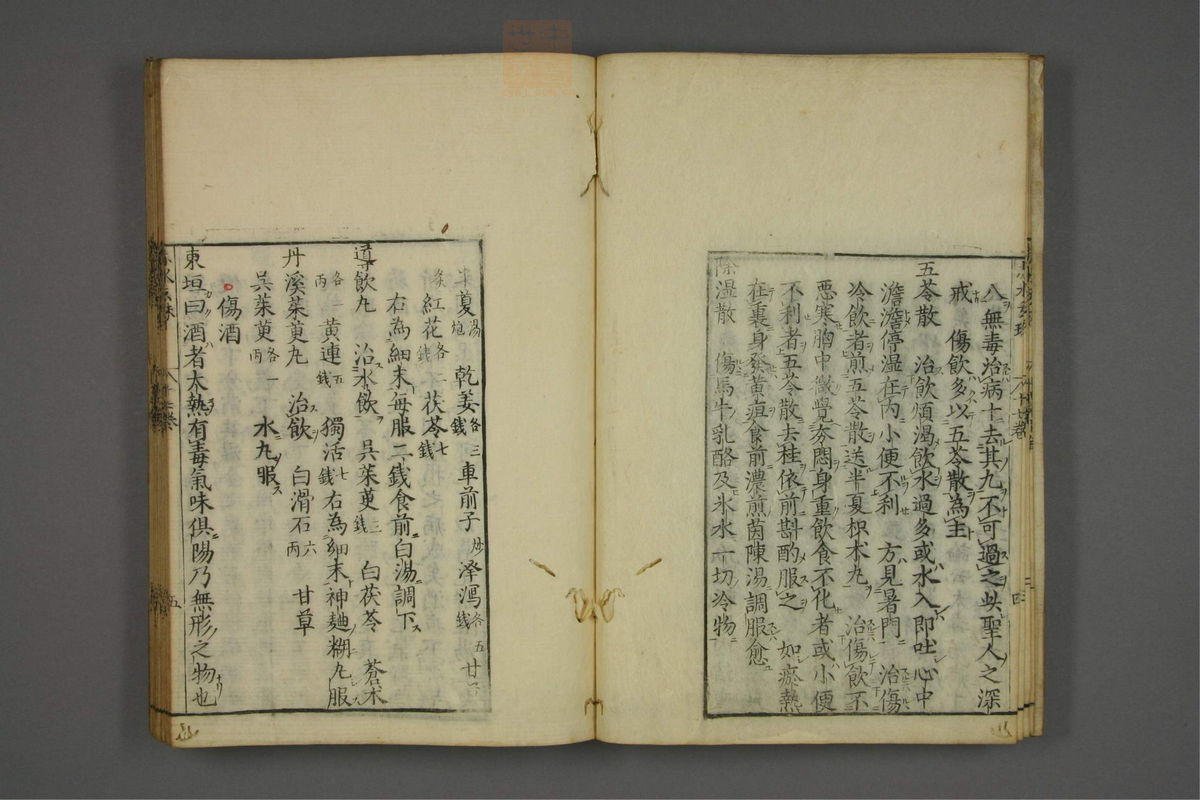 八無毒治病十去其九不可過之此聖人之深
戒　傷飲多以五苓散為主
五苓散　治飲煩渇飲水過多或水入即吐心中
澹澹停湿在内小便不利　方見暑門　治傷
冷飲者煎五苓散送半夏枳朮丸　治傷飲不
惡寒胸中微覺夯悶身重飲食不化者或小便
不利者五苓散去桂依前斟酌服之　如瘀熱
在裏身發黄疸食前濃煎茵陳湯調服愈
除湿散　傷馬牛乳酪及氷水一切冷物
半夏湯炮　乾姜各三錢　車前子炒　泽瀉各五錢
紅花各一錢　茯苓七錢
右為細末毎服二錢食前白湯調下
導飲丸　治水飲　呉茱萸三錢　白茯苓　蒼朮
各一両　黄連五錢　獨活七錢　右為細末神麯糊丸服
丹溪茱萸丸　治飲　白滑石六両　甘草
呉茱萸各一両　水丸服
傷酒
東垣曰酒者大熱有毒氣味俱陽乃無形之物也
五